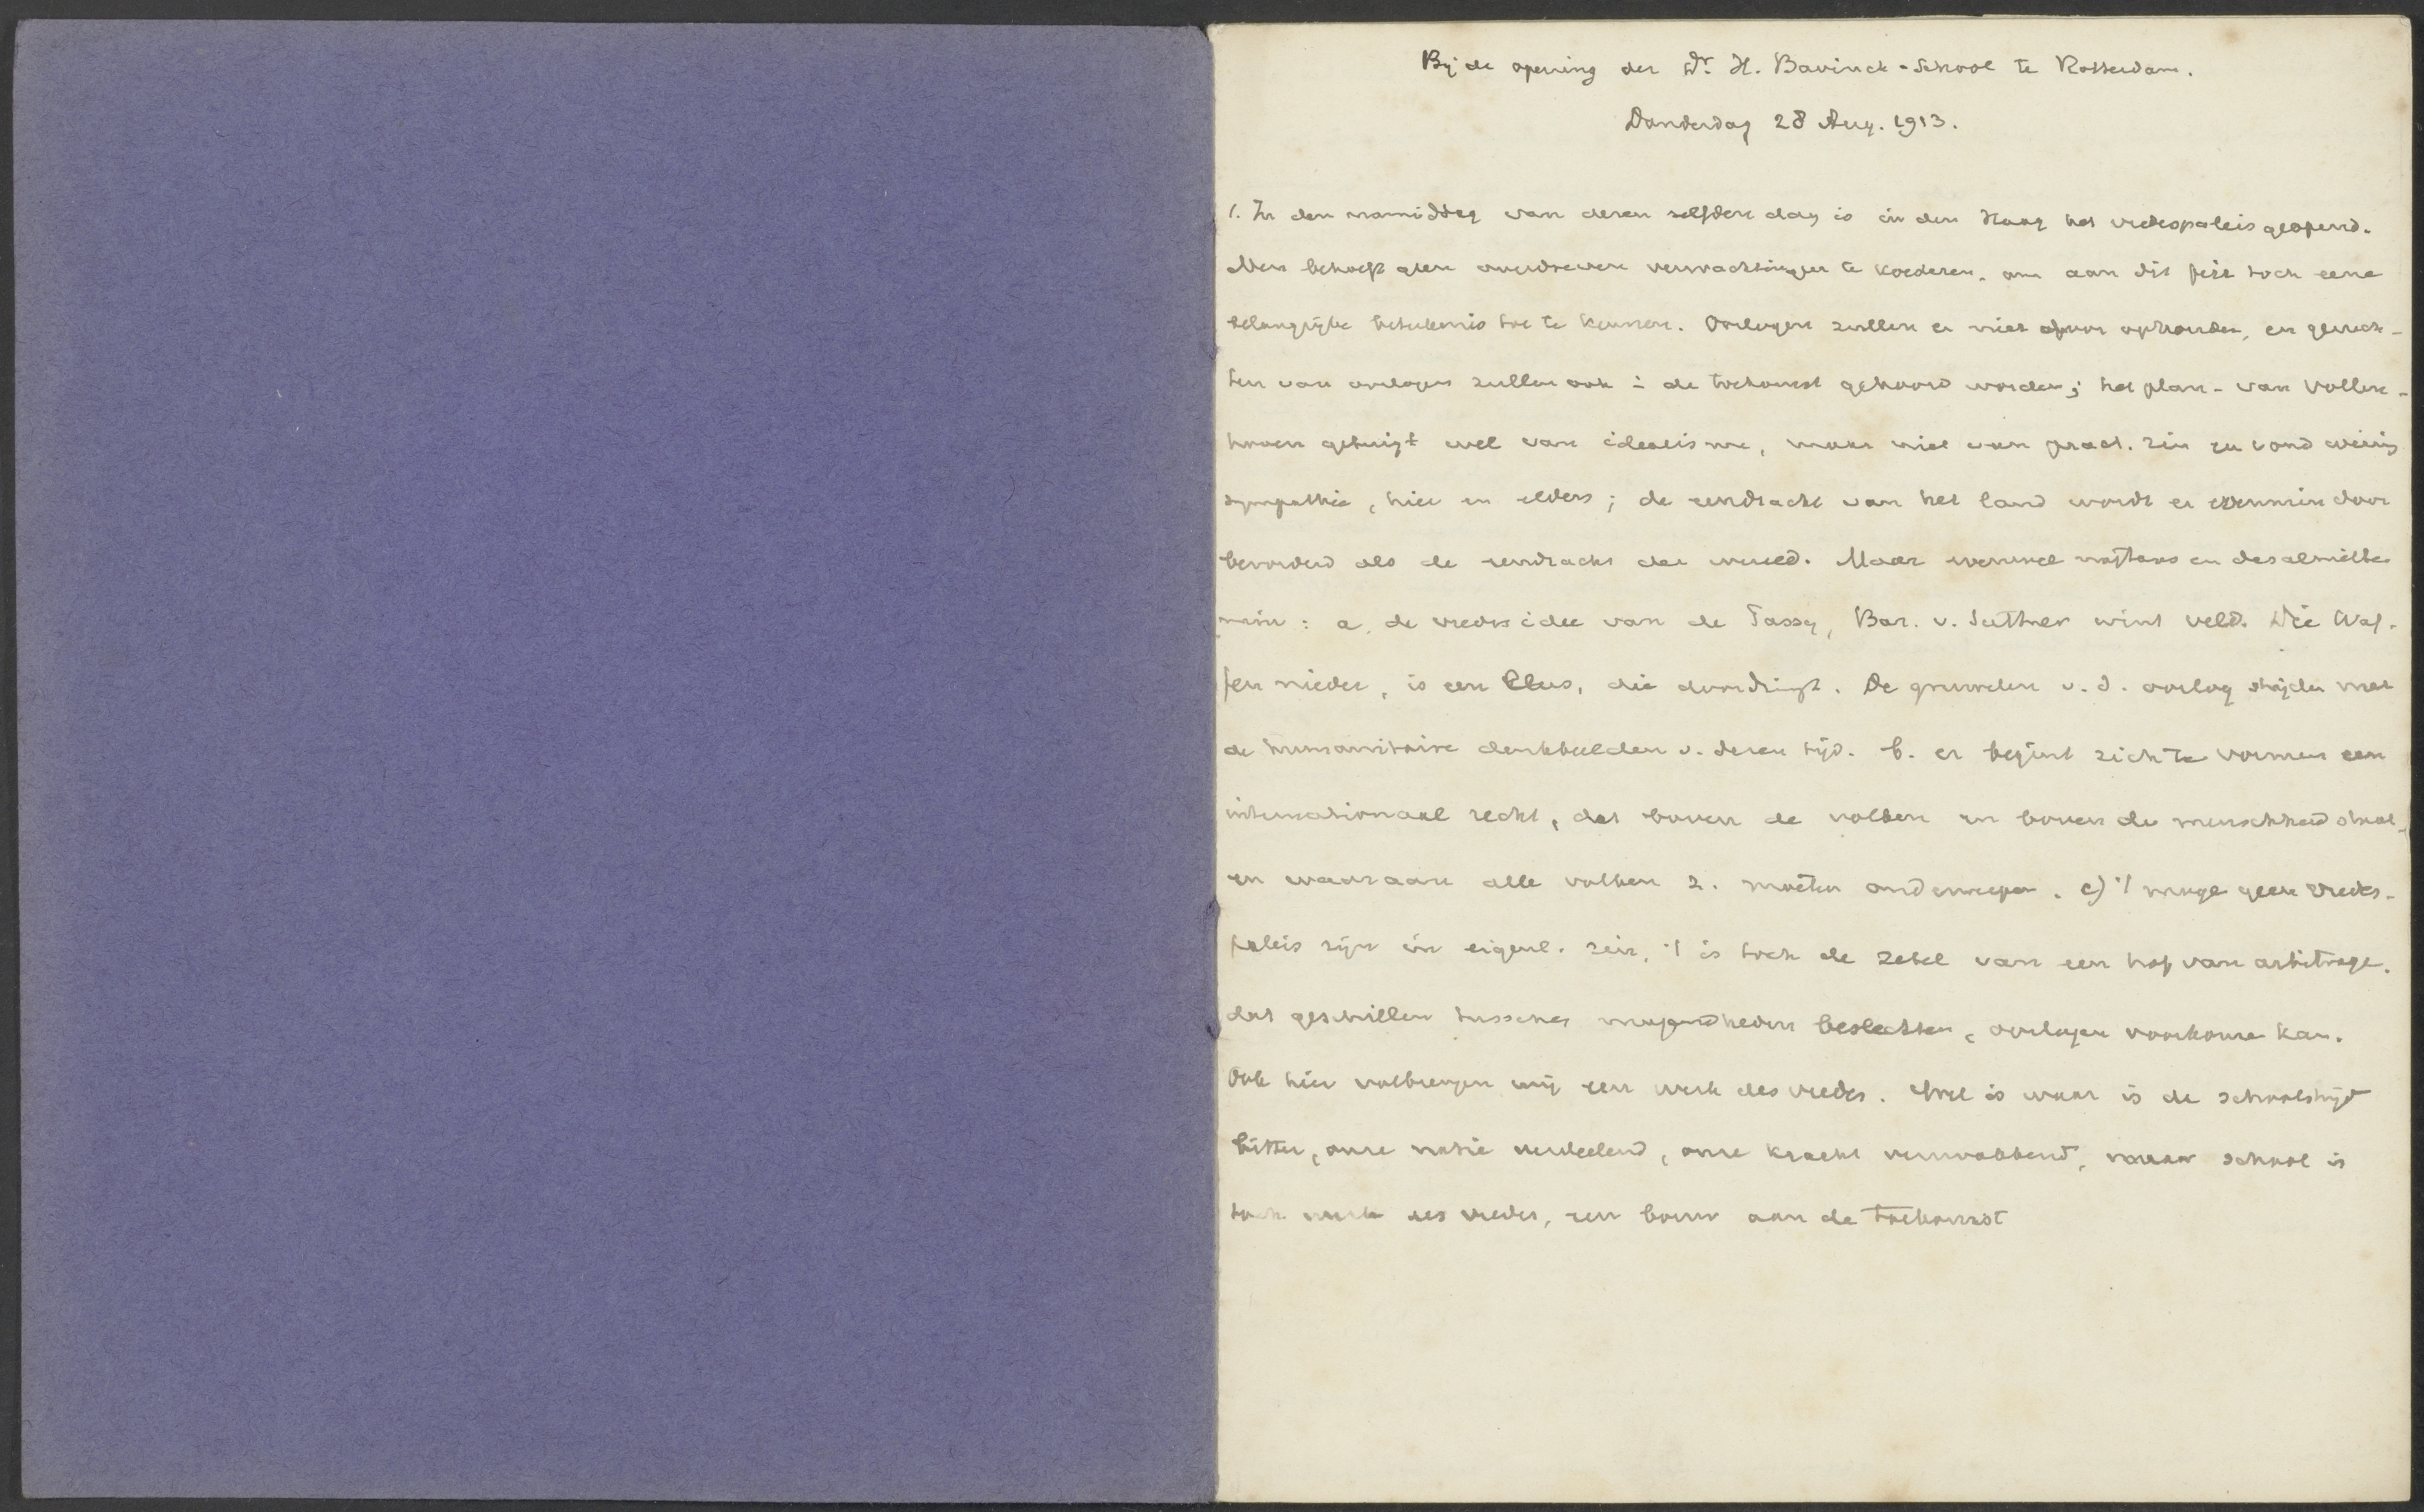 Bij de opening der Dr. H. Bavinck-School te Rotterdam.
Donderdag 28 Aug. 1913.
1. In den namiddag van dezen zelfden dag is in den Haag het vredespaleis geopend.
Men behoeft geen overdreven verwachtingen te koesteren, om aan dit feit toch eene
belangrijke beteekenis toe te kennen. Oorlogen zullen er niet door ophouden, en geruch-
ten van oorlogen zullen ook in de toekomst gehoord worden; het plan - van Vollen-
hoven getuigt wel van idealisme, maar niet van pract. zin en vond weinig
sympathie, hier en elders; de eendracht van het land wordt er evenmin door
bevorderd als de eendracht der wereld. Maar evenwel
: a. de vredesidee van de Passy, Bar. v. Suttner wint veld. Die Waf-
fen nieder, is een leus, die doordringt. De gruwelen v.d. oorlog strijden met
de humanitaire denkbeelden v. dezen tijd. b. er begint zich te vormen een
internationaal recht, dat boven de volken en boven de menschheid staat,
en waaraan alle volken z. moeten onderwerpen. c) 't moge geen vredes-
paleis zijn in eigenl. zin, 't is toch de zetel van een hof van arbitrage,
dat geschillen tusschen mogendheden beslechten, oorlogen voorkomen kan.
Ook hier volbrengen wij een werk des vredes. Wel is waar is de schoolstrijd
bitter, onze natie verdeelend, onze kracht verzwakkend, maar school is
toch werk des vredes, een bouw aan de toekomst